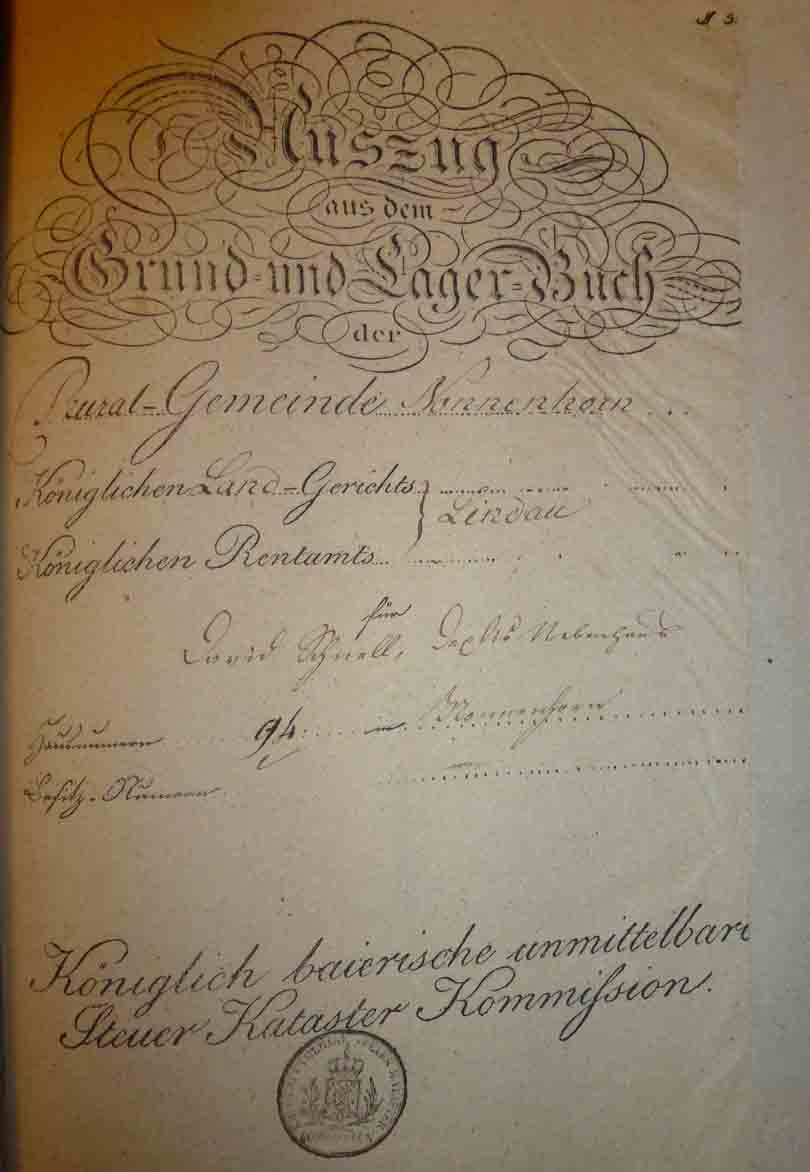 Auszug
aus dem
Grund- und Lager-Buch
der
Rural-Gemeinde Nonnenhorn
Königlichen Land-Gerichts
Lindau
Königlichen Rentamts
für
David Schnell, Nebenhaus
Hausnumern 94 in Nonnenhorn
Besitz-Numern
Königlich baierische unmittelbare
Steuer Kataster Kommißion.